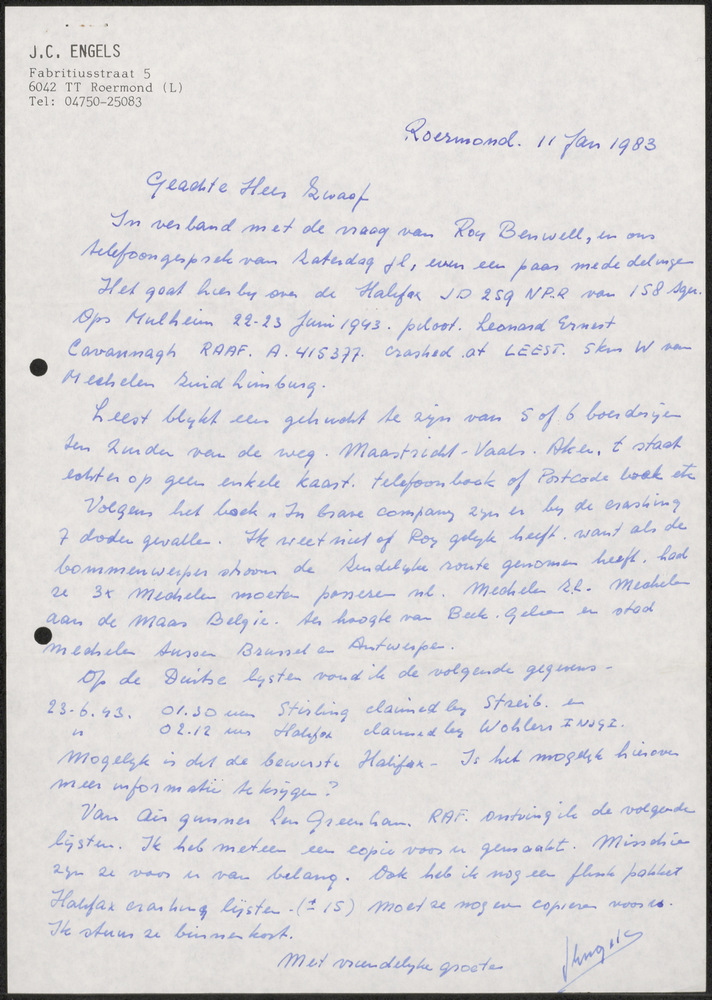 J.C. ENGELS
Fabritiusstraat 5
6042 TT Roermond (L)
Tel: 04750-25083
Roermond. 11 Jan 1983
Geachte Heer Zwaaf
In verband met de vraag van Roy Benwell, en ons
telefoongesprek van Zaterdag jl, even een paar mededelingen
Het gaat hierby over de Halifax JD 259 NP.R van 158 Sqn.
Ops Mulheim 22-23 Juni 1943. piloot. Leonard Ernest
Cavannagh RAAF. A.415377. crashed at LEEST. 5km W van
Mechelen Zuid Limburg.
Leest blykt een gehucht te zyn van 5 of 6 boerderyen
ten Zuiden van de weg. Maastricht-Vaals. Aken, t staat
echter op geen enkele kaart. telefoonboek of Postcode boek etc
Volgens het boek "In brave company zyn er by de crashing
7 doden gevallen. Ik weet niet of Roy gelyk heeft. want als de
bommenwerper stroom de Zuidelyke route genomen heeft. had
ze 3x Mechelen moeten passeren nl. Mechelen Z.L. Mechelen
aan de Maas Belgie. ter hoogte van Beek. Geleen en stad
Mechelen tussen Brussel en Antwerpen.
Op de Duitse lysten vond ik de volgende gegevens-
23-6.43. 01.30 uur Stirling claimed by Streib. en
" 02.12 uur Halifax claimed by Wohlers I NJG I.
Mogelyk is dit de bewuste Halifax- Is het mogelyk hierover
meer informatie te krygen?
Van Air gunner Len Greenham. RAF. ontving ik de volgende
lysten. Ik heb meteen een copie voor u gemaakt. Misschien
zyn ze voor u van belang. Ook heb ik nog een flink pakket
Halifax crashing lysten.(± 15) Moet ze nog even copieren voor u.
Ik stuur ze binnenkort.
Met vriendelyke groeten
JEngels